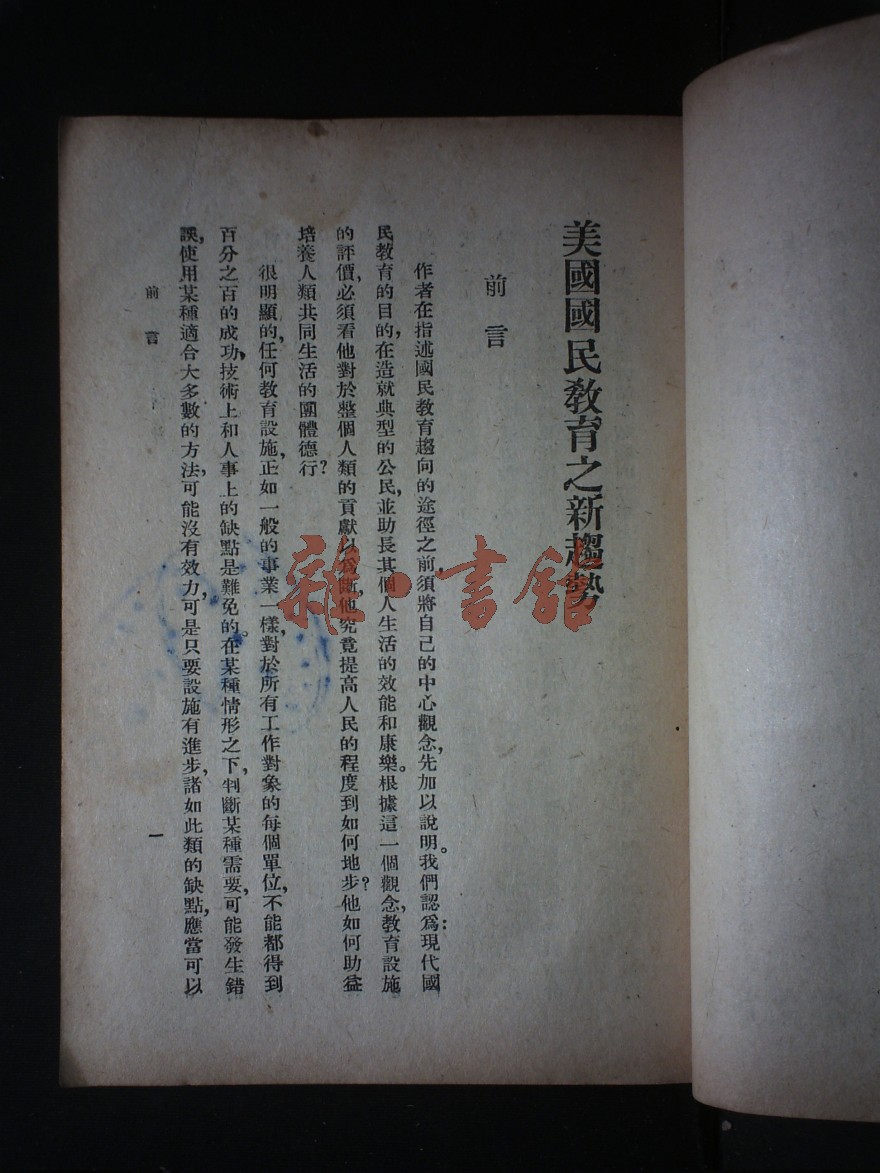 美國國民教育之新趨勢
前言
作者在指述國民教育趨向的途徑之前,須將自己的中心觀念,先加以說明。我們認爲:現代國
民教育的目的,在造就典型的公民,並助長其個人生活的效能和康樂。根據這一個觀念,教育設施
的評價,必須看他對於整個人類的貢獻以爲斷,他究竟提高人民的程度到如何地步?他如何助益
培養人類共同生活的團體德行?
很明顯的,任何教育設施,正如一般的事業一樣,對於所有工作對象的每個單位,不能都得到
百分之百的成功,技術上和人事上的缺點是難免的。在某種情形之下,判斷某種需要,可能發生錯
誤,使用某種適合大多數的方法,可能沒有效力,可是只要設施有進步,諸如此類的缺點,應當可以
前言
一
雜·書館